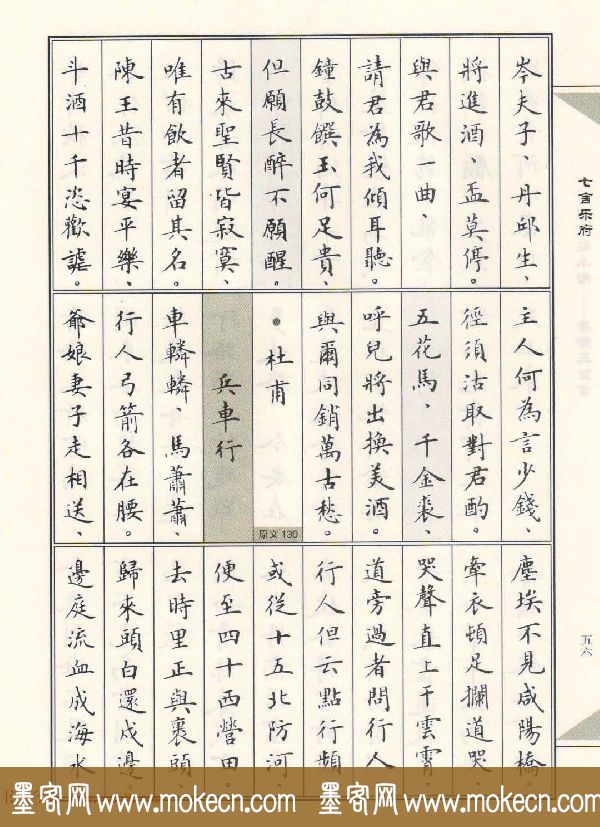 岑夫子、丹邱生、
將進酒、盃莫停。
與君歌一曲、
請君為我傾耳聽。
鐘鼓饌玉何足貴、
但願長醉不願醒。
古來聖賢皆寂寞、
唯有飲者留其名。
陳王昔時宴平樂、
斗酒十千恣歡謔。
主人何為言少錢、
徑須沽取對君酌。
五花馬、千金裘、
呼兒將出換美酒。
與爾同銷萬古愁。
●杜甫
兵車行
原文 130
車轔轔、馬蕭蕭、
行人弓箭各在腰。
爺娘妻子走相送、
塵埃不見咸陽橋。
牽衣頓足攔道哭、
哭聲直上干雲霄。
道旁過者問行人、
行人但云點行頻。
或從十五北防河、
便至四十西營田。
去時里正與裹頭、
歸來頭白還戍邊。
邊庭流血成海水、
七言乐府
五六
墨客网 www.mokecn.com 墨客网 www.mokecn.com